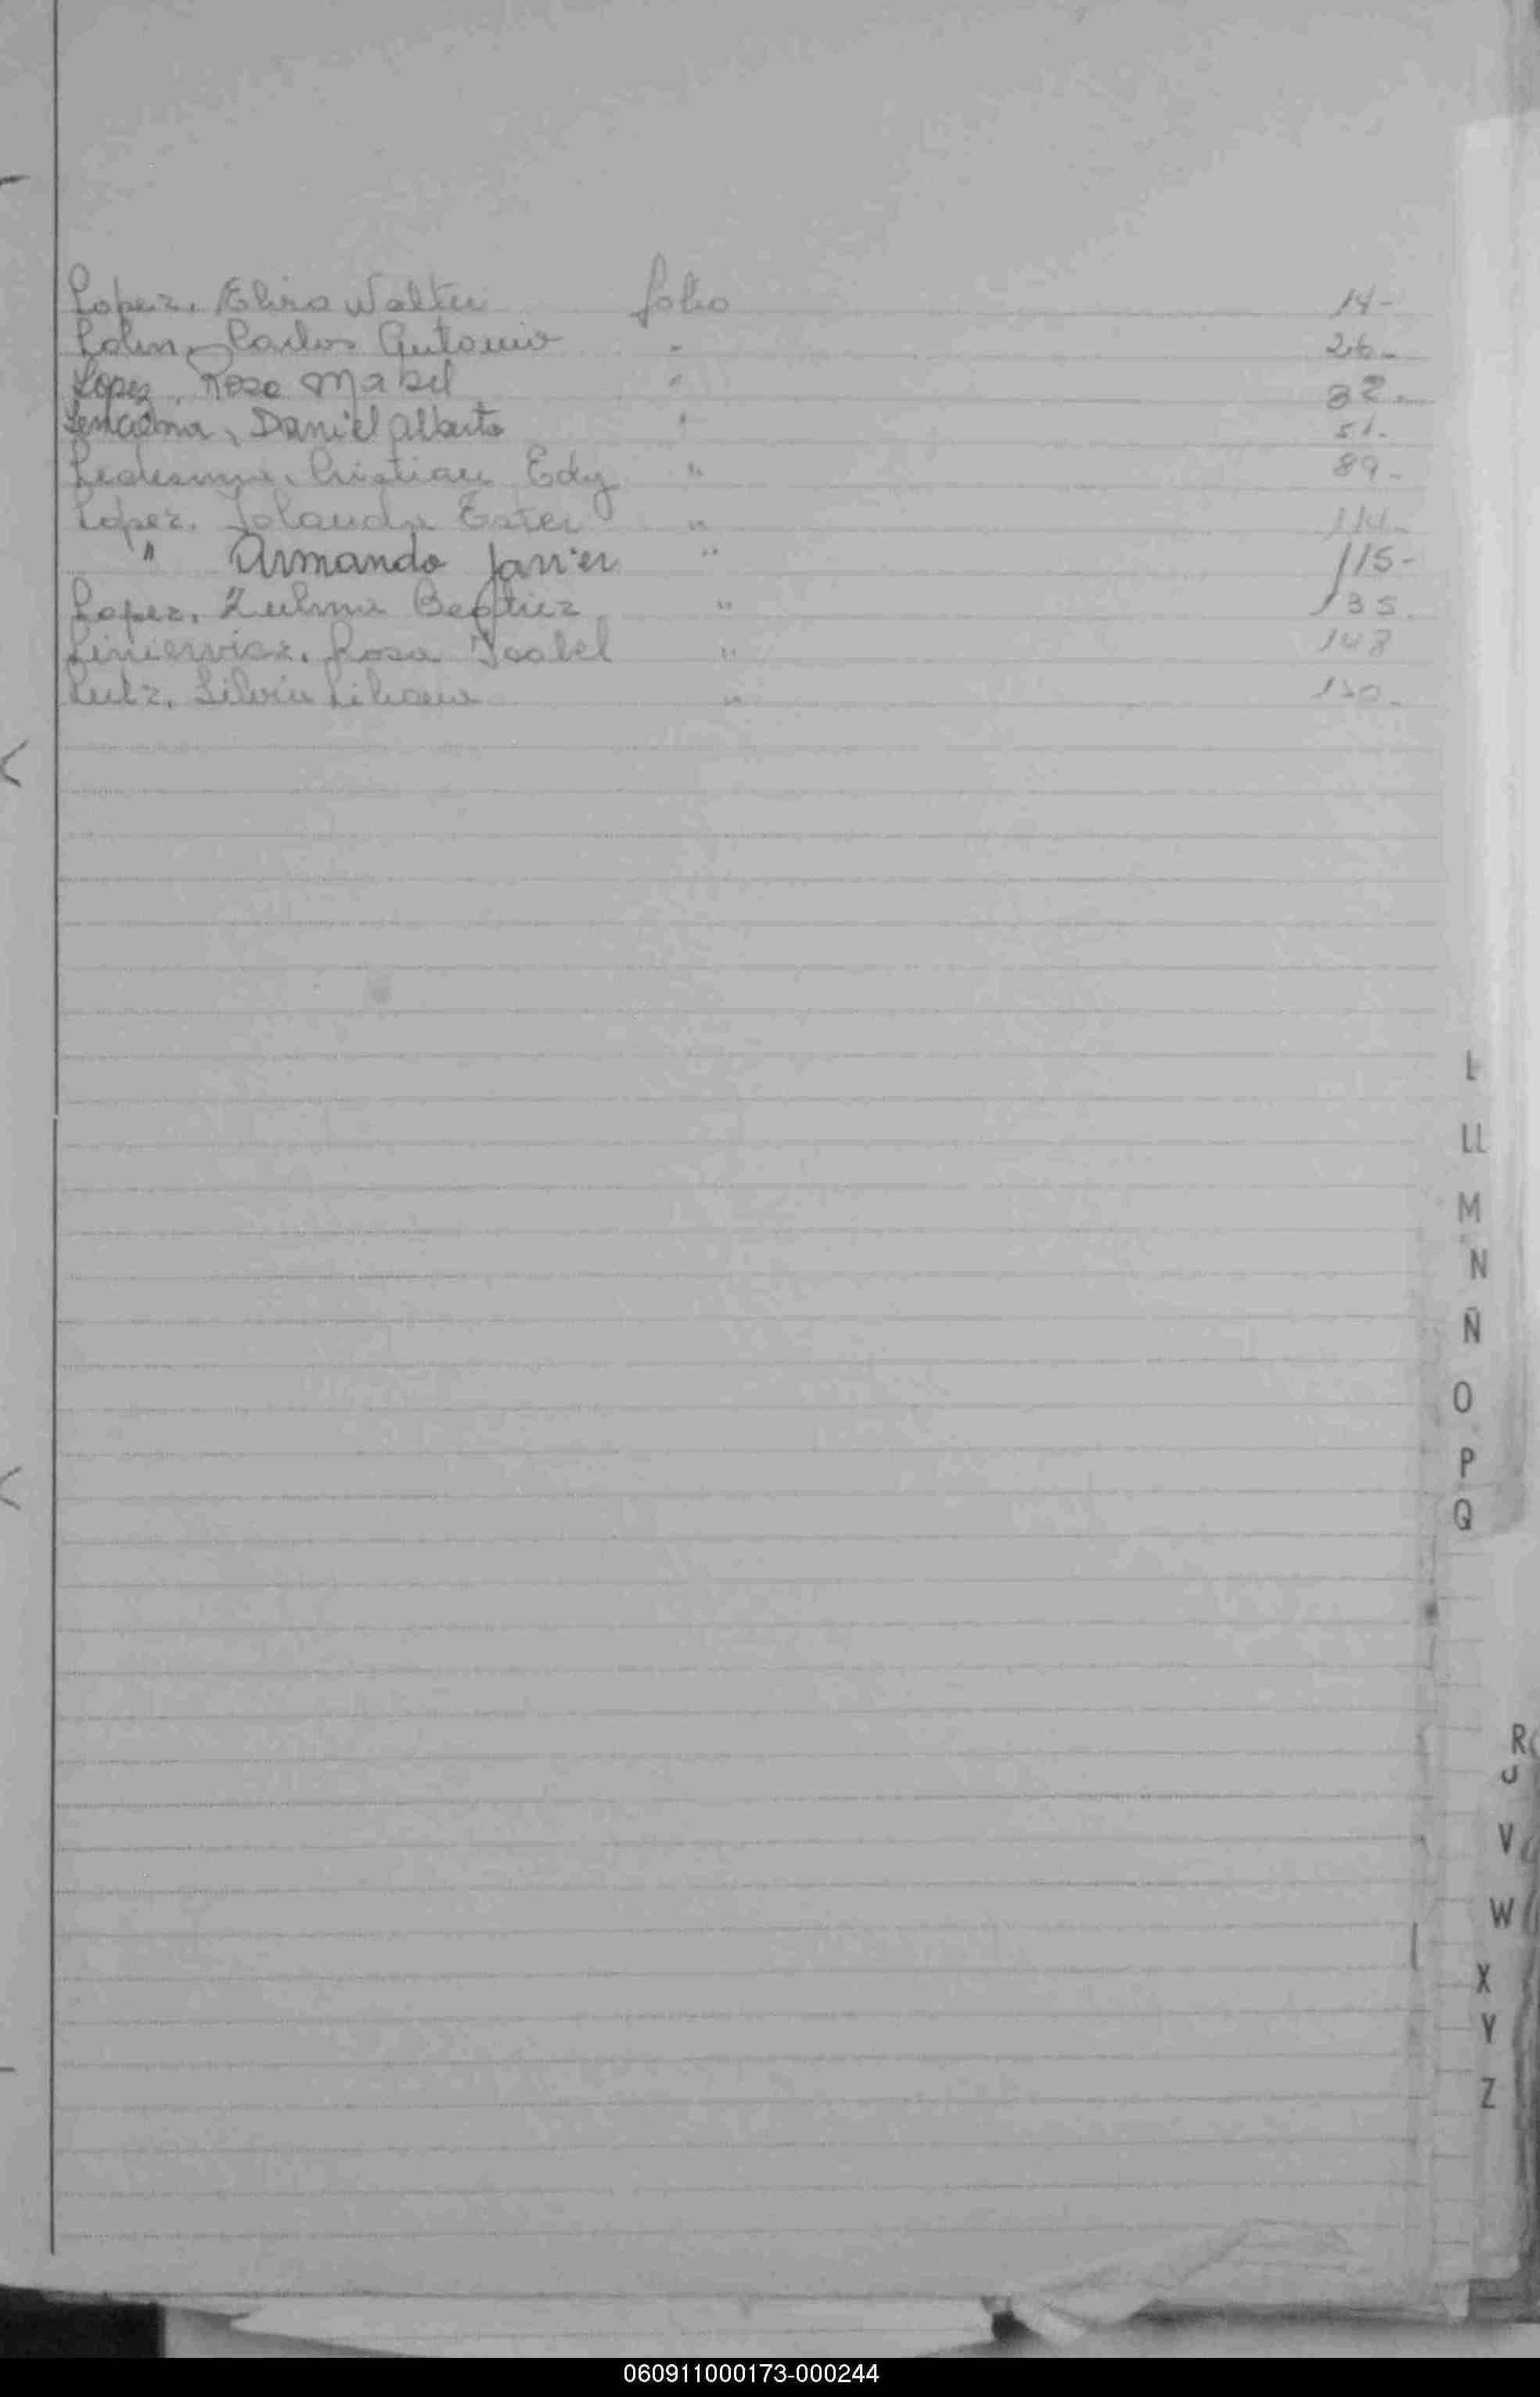 Lopez. Elira Walter folio 14-
Lolin, Carlos Antonio " 26-
Lopez, Rosa Mabel " 32-
Daniel Alberto " 51-
Ledesma, Cristian Edy " 89-
Lopez. Iolanda Ester " 114-
" Armando Javier " 115-
Lopez, Zulma Beatriz " 135.
Linierwicz. Rosa Isabel " 148
Lutz. Silvia Liliana " 150-
L
LL
M
N
Ñ
O
P
Q
R
U
V
W
X
Y
Z
060911000173-000244